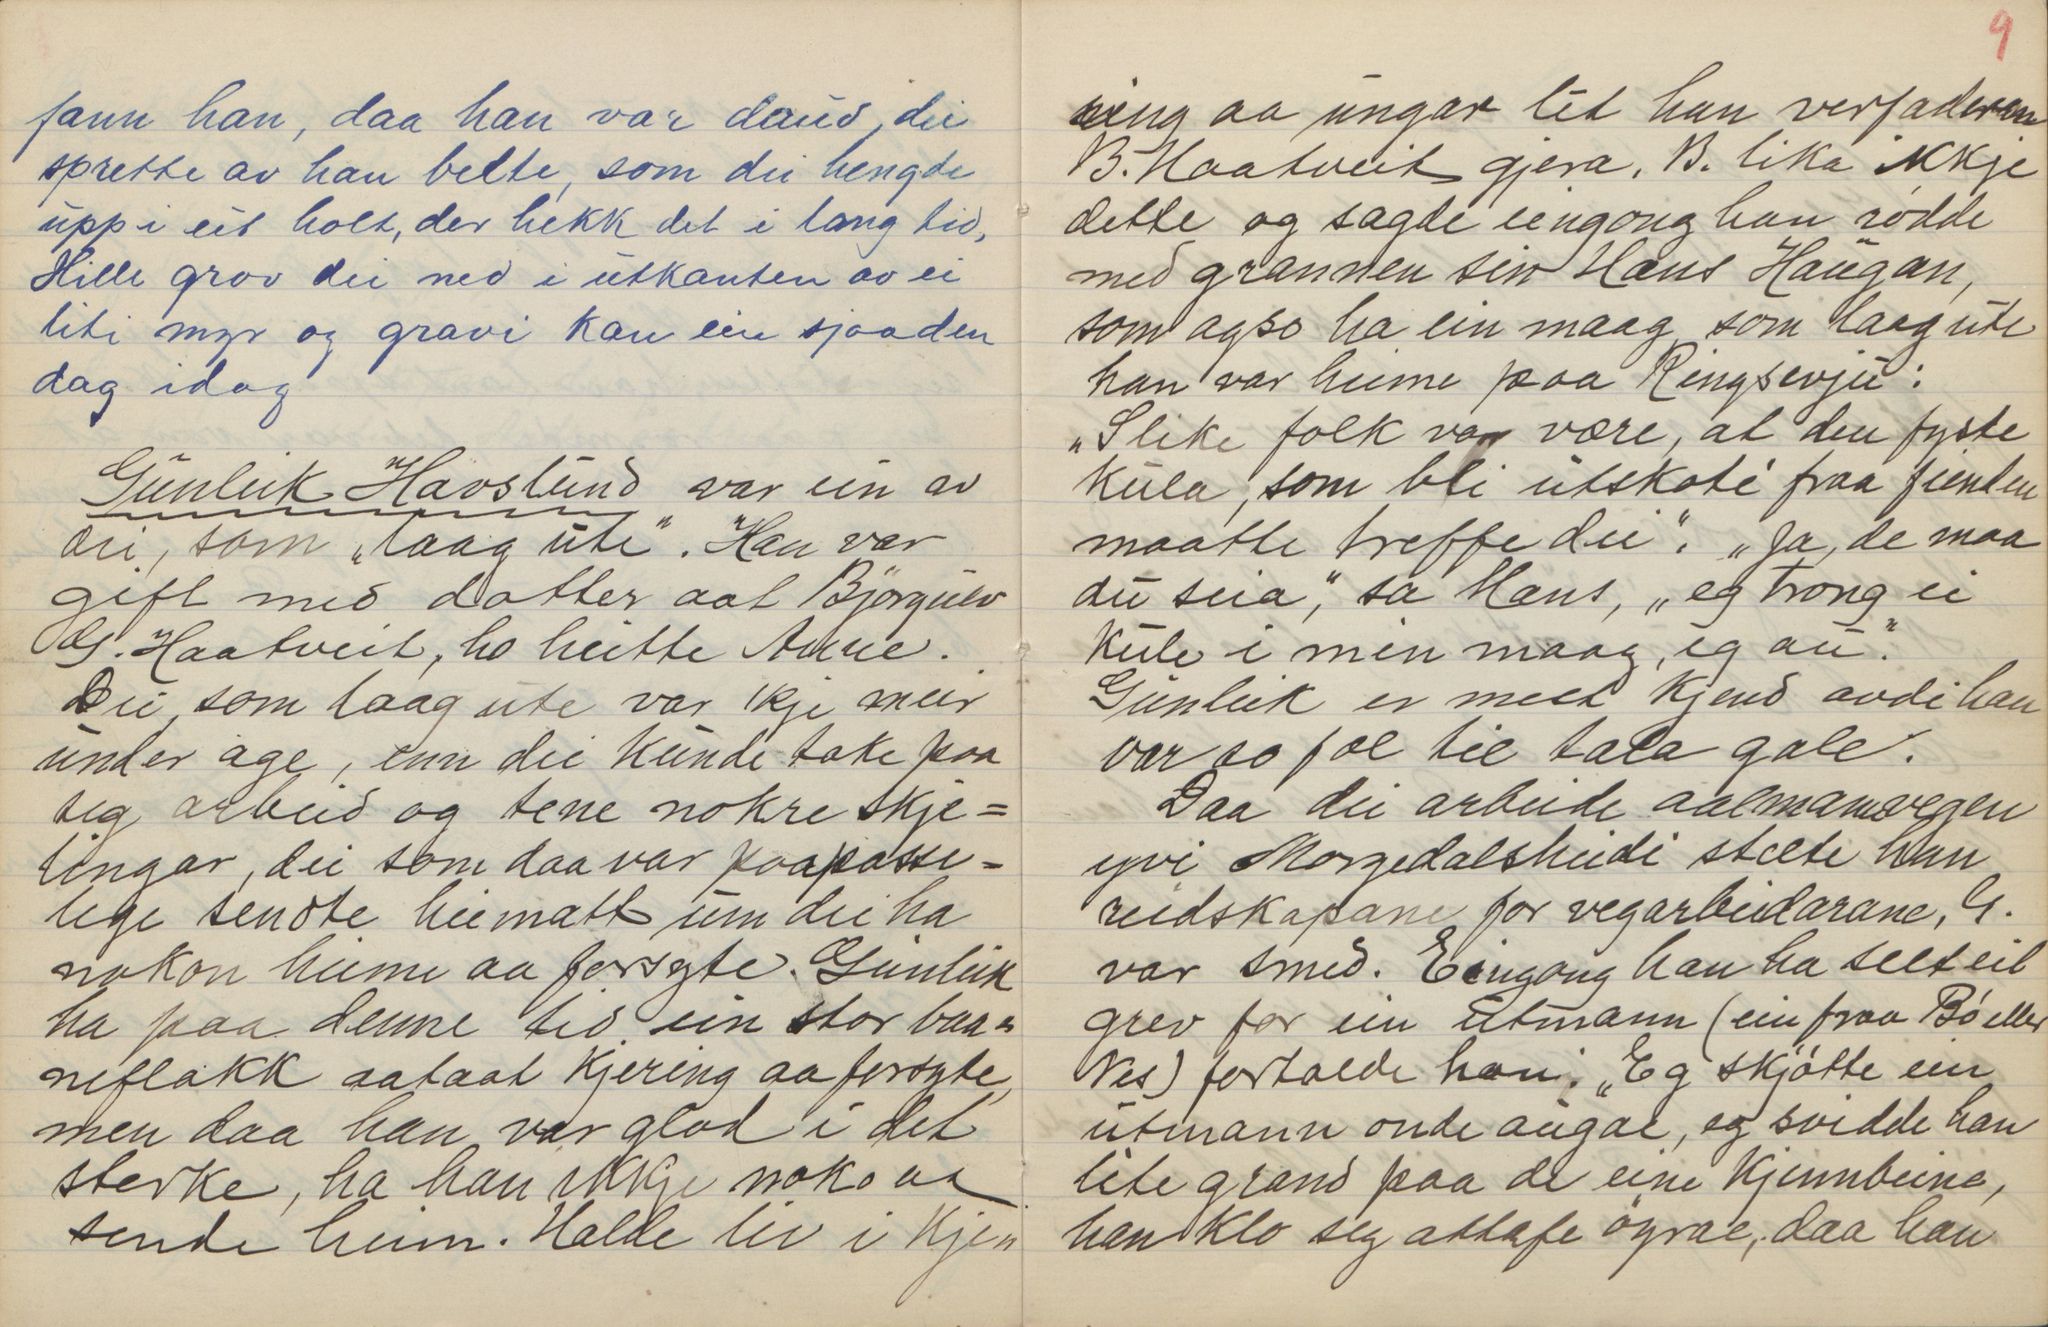 fann han, daa han var daud, dei
sprette av han belte, som dei hengde
upp i eit holt, der hekk det i lang tid,
Hille grov dei ned i utkanten av ei
liti myr og gravi kan ein sjaa den
dag idag
Gunleik Havslund var ein av
dei, som „laag ute". Han var
gift med dotter aat Björgulv
G. Haatveit, ho heitte Anne.
Dei, som laag ute var 'kje meir
under age, enn dei kunde take paa
seg arbeid og tene nokre skje=
lingar, dei som daa var paapasse-
lege sendte heimatt um dei ha
nokon heime aa forsyte. Gunleik
ha paa denne tid ein stor baa=
neflokk aataat kjering aa forsyte,
men daa han var glad i det
sterke, ha han ikkje noko aa
sende heim. Halde liv i kje=
9
ring aa ungar let han verfaderen
B. Haatveit gjera. B. lika ikkje
dette og sagde eingong han rødde
med grannen sin Hans Haugan,
som ogso ha ein maag som laag ute
han var heime paa Ringsevju:
„Slike folk var være, at den fyste
kula, som bli utskoti fraa fienden
maatte treffe dei". „Ja, de maa
du seia," sa Hans, „eg trong ei
kule i min maag, eg au".
Gunleik er mest kjend avdi han
var so fæl til tala gale.
Daa dei arbeide aalmannvegen
yvi Morgedalsheidi stelte han
reidskapane for vegarbeidarane, G.
var smed. Eingong han ha stelt eit
grev for ein utmann (ein fraa Bø eller
Nes) fortalde han: „Eg skjøtte ein
utmann onde augae, eg svidde han
lite grand paa de eine kjinnbeine,
han klo seg attafe øyrae, daa han